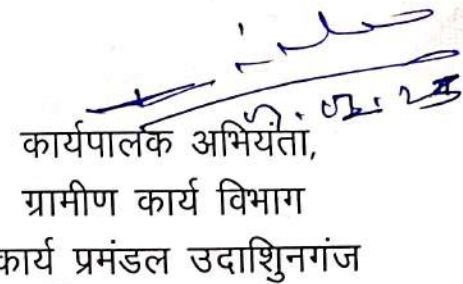 कार्यपालक अभियंता,
ग्रामीण कार्य विभाग
कार्य प्रमंडल उदाशुिनगंज